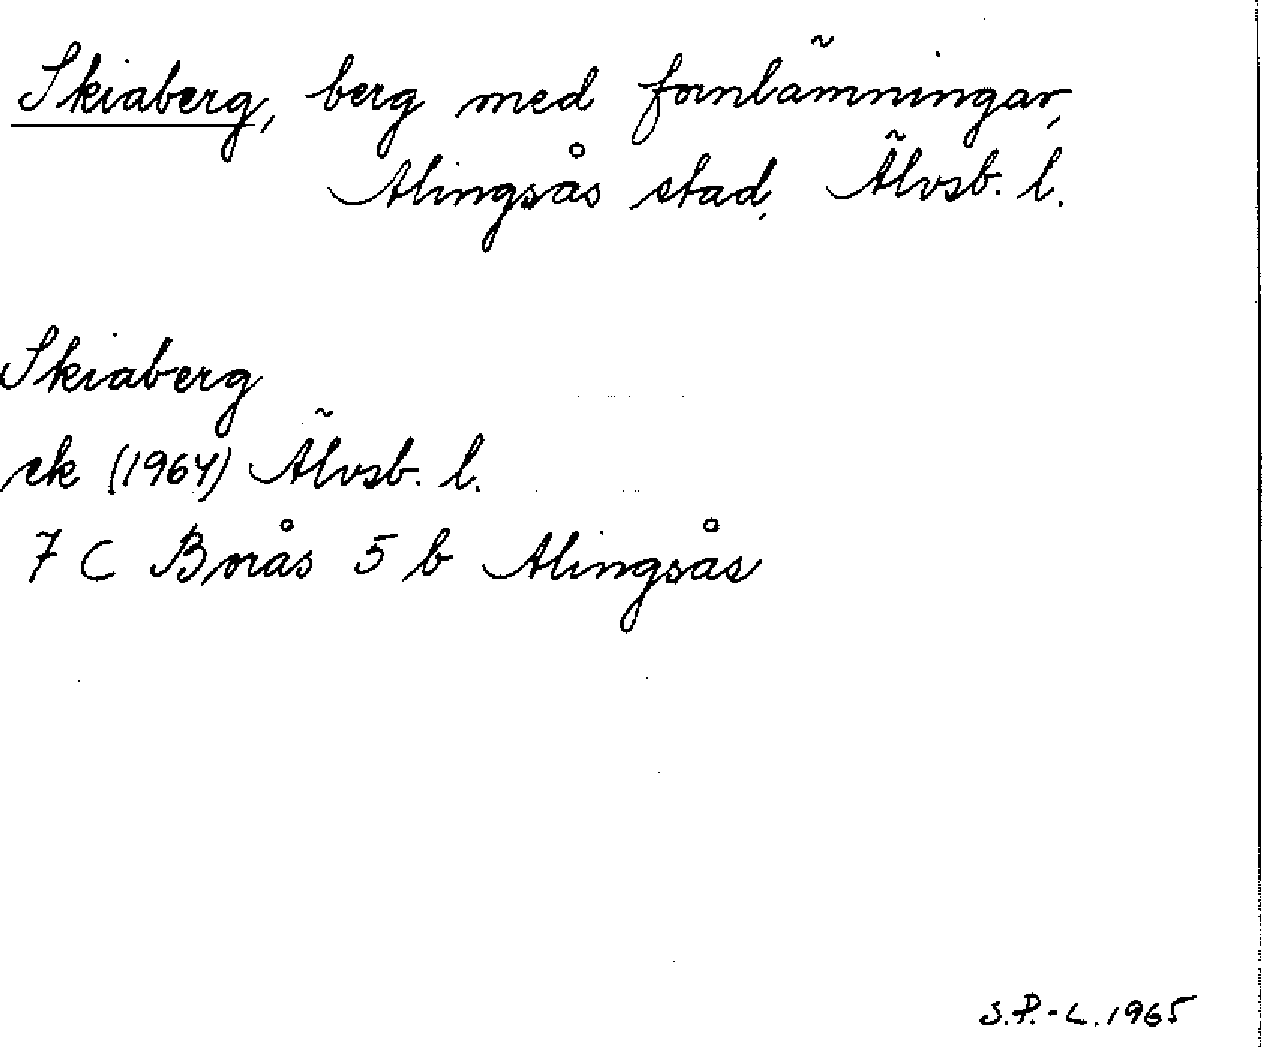 Skiaberg, berg med fornlämningar,
Alingsås stad, Älvsb. l.
Skiaberg
ek (1964) Älvsb. l.
7 C Borås 5 b Alingsås
S.P.-L. 1965